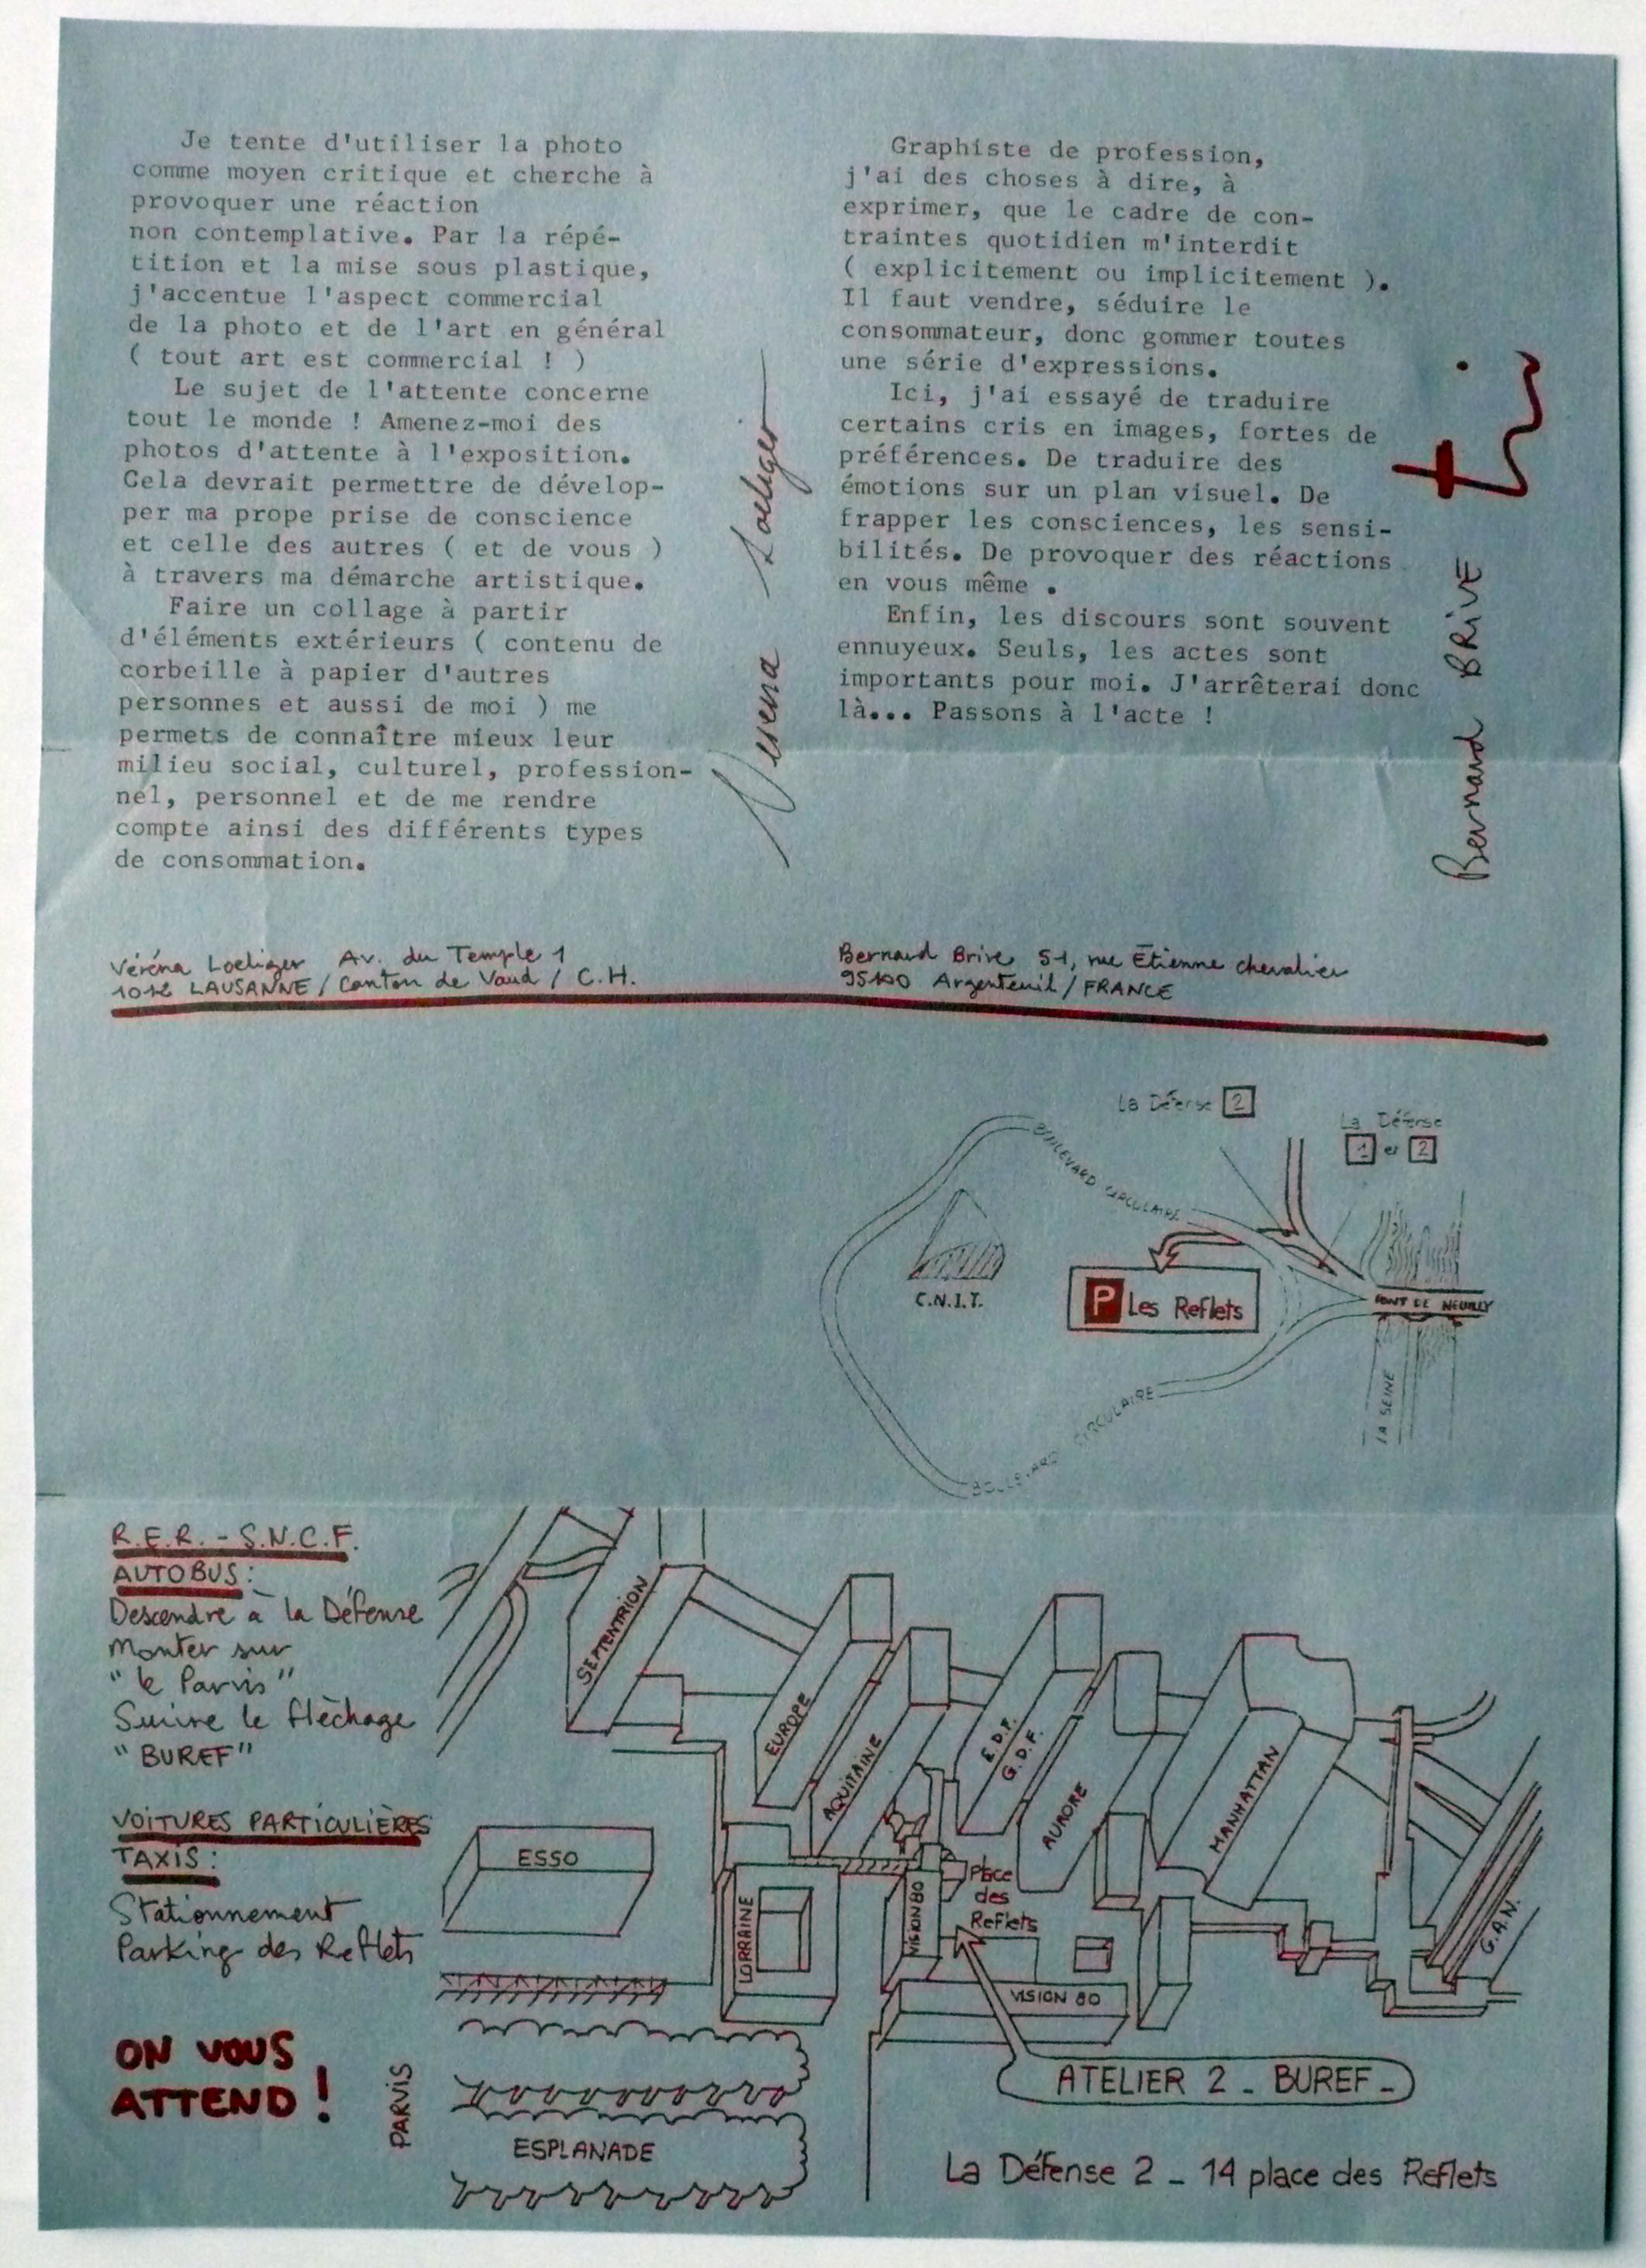 Je tente d'utiliser la photo
comme moyen critique et cherche à
provoquer une réaction
non contemplative. Par la répé-
tition et la mise sous plastique,
j'accentue l'aspect commercial
de la photo et de l'art en général
( tout art est commercial ! )
Le sujet de l'attente concerne
tout le monde ! Amenez-moi des
photos d'attente à l'exposition.
Cela devrait permettre de dévelop-
per ma prope prise de conscience
et celle des autres ( et de vous )
à travers ma démarche artistique.
Faire un collage à partir
d'éléments extérieurs ( contenu de
corbeille à papier d'autres
personnes et aussi de moi ) me
permets de connaître mieux leur
milieu social, culturel, profession-
nel, personnel et de me rendre
compte ainsi des différents types
de consommation.
Verena Loeliger
Graphiste de profession,
j'ai des choses à dire, à
exprimer, que le cadre de con-
traintes quotidien m'interdit
( explicitement ou implicitement ).
Il faut vendre, séduire le
consommateur, donc gommer toutes
une série d'expressions.
Ici, j'ai essayé de traduire
certains cris en images, fortes de
préférences. De traduire des
émotions sur un plan visuel. De
frapper les consciences, les sensi-
bilités. De provoquer des réactions
en vous même .
Enfin, les discours sont souvent
ennuyeux. Seuls, les actes sont
importants pour moi. J'arrêterai donc
là... Passons à l'acte !
Bernard BRIVE
Véréna Loeliger Av. du Temple 1
1012 LAUSANNE / Canton de Vaud / C.H.
Bernard Brive 51, rue Étienne chevalier
95100 Argenteuil / FRANCE
La Défense 2
La Défense
1 et 2
BOULEVARD CIRCULAIRE
C.N.I.T.
P Les Reflets
PONT DE NEUILLY
LA SEINE
BOULEVARD CIRCULAIRE
R.E.R. - S.N.C.F.
AUTOBUS :
Descendre à la Défense
Monter sur
"le Parvis"
Suivre le flèchage
"BUREF"
VOITURES PARTICULIÈRES
TAXIS :
Stationnement
Parking des Reflets
ON VOUS
ATTEND !
SEPTENTRION
EUROPE
AQUITAINE
E.D.F.
G.D.F.
AURORE
MANHATTAN
G.A.N.
ESSO
LORRAINE
VISION 80
Place
des
Reflets
VISION 80
PARVIS
ESPLANADE
ATELIER 2 - BUREF -
La Défense 2 - 14 place des Reflets